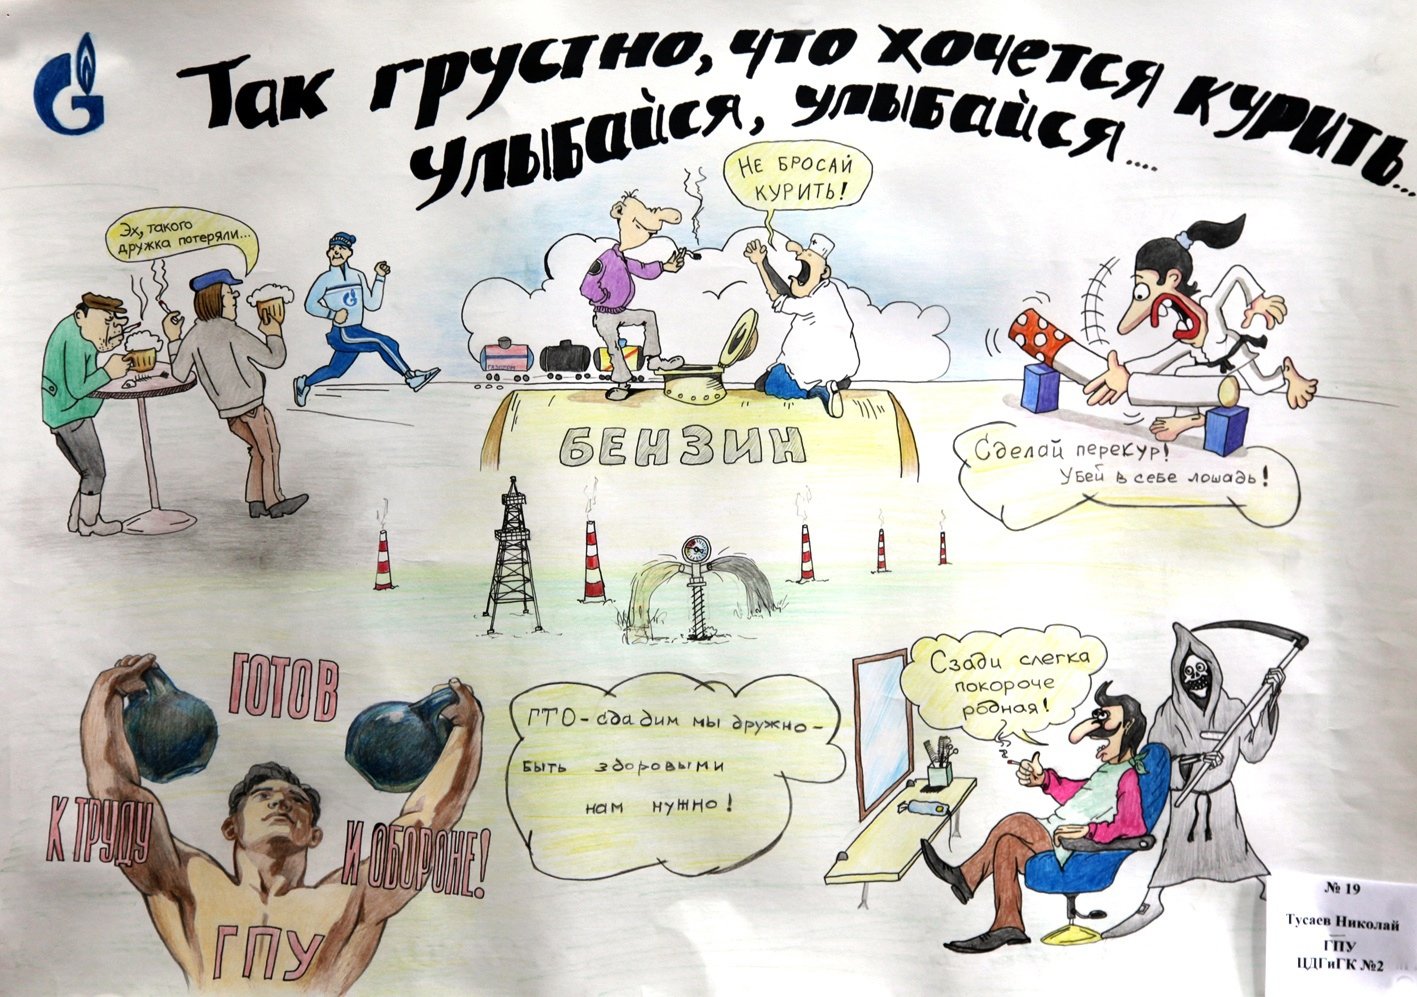 Так грустно, что хочется курить...
улыбайся, улыбайся....
Эх, такого
дружка потеряли...
Не бросай
курить!
ГАЗПРОМ
БЕНЗИН
Сделай перекур!
Убей в себе лошадь!
ГОТОВ
К ТРУДУ
И ОБОРОНЕ!
ГПУ
ГТО - сдадим мы дружно -
быть здоровыми
нам нужно!
Сзади слегка
покороче
родная!
№ 19
Тусаев Николай
ГПУ
ЦДГиГК №2